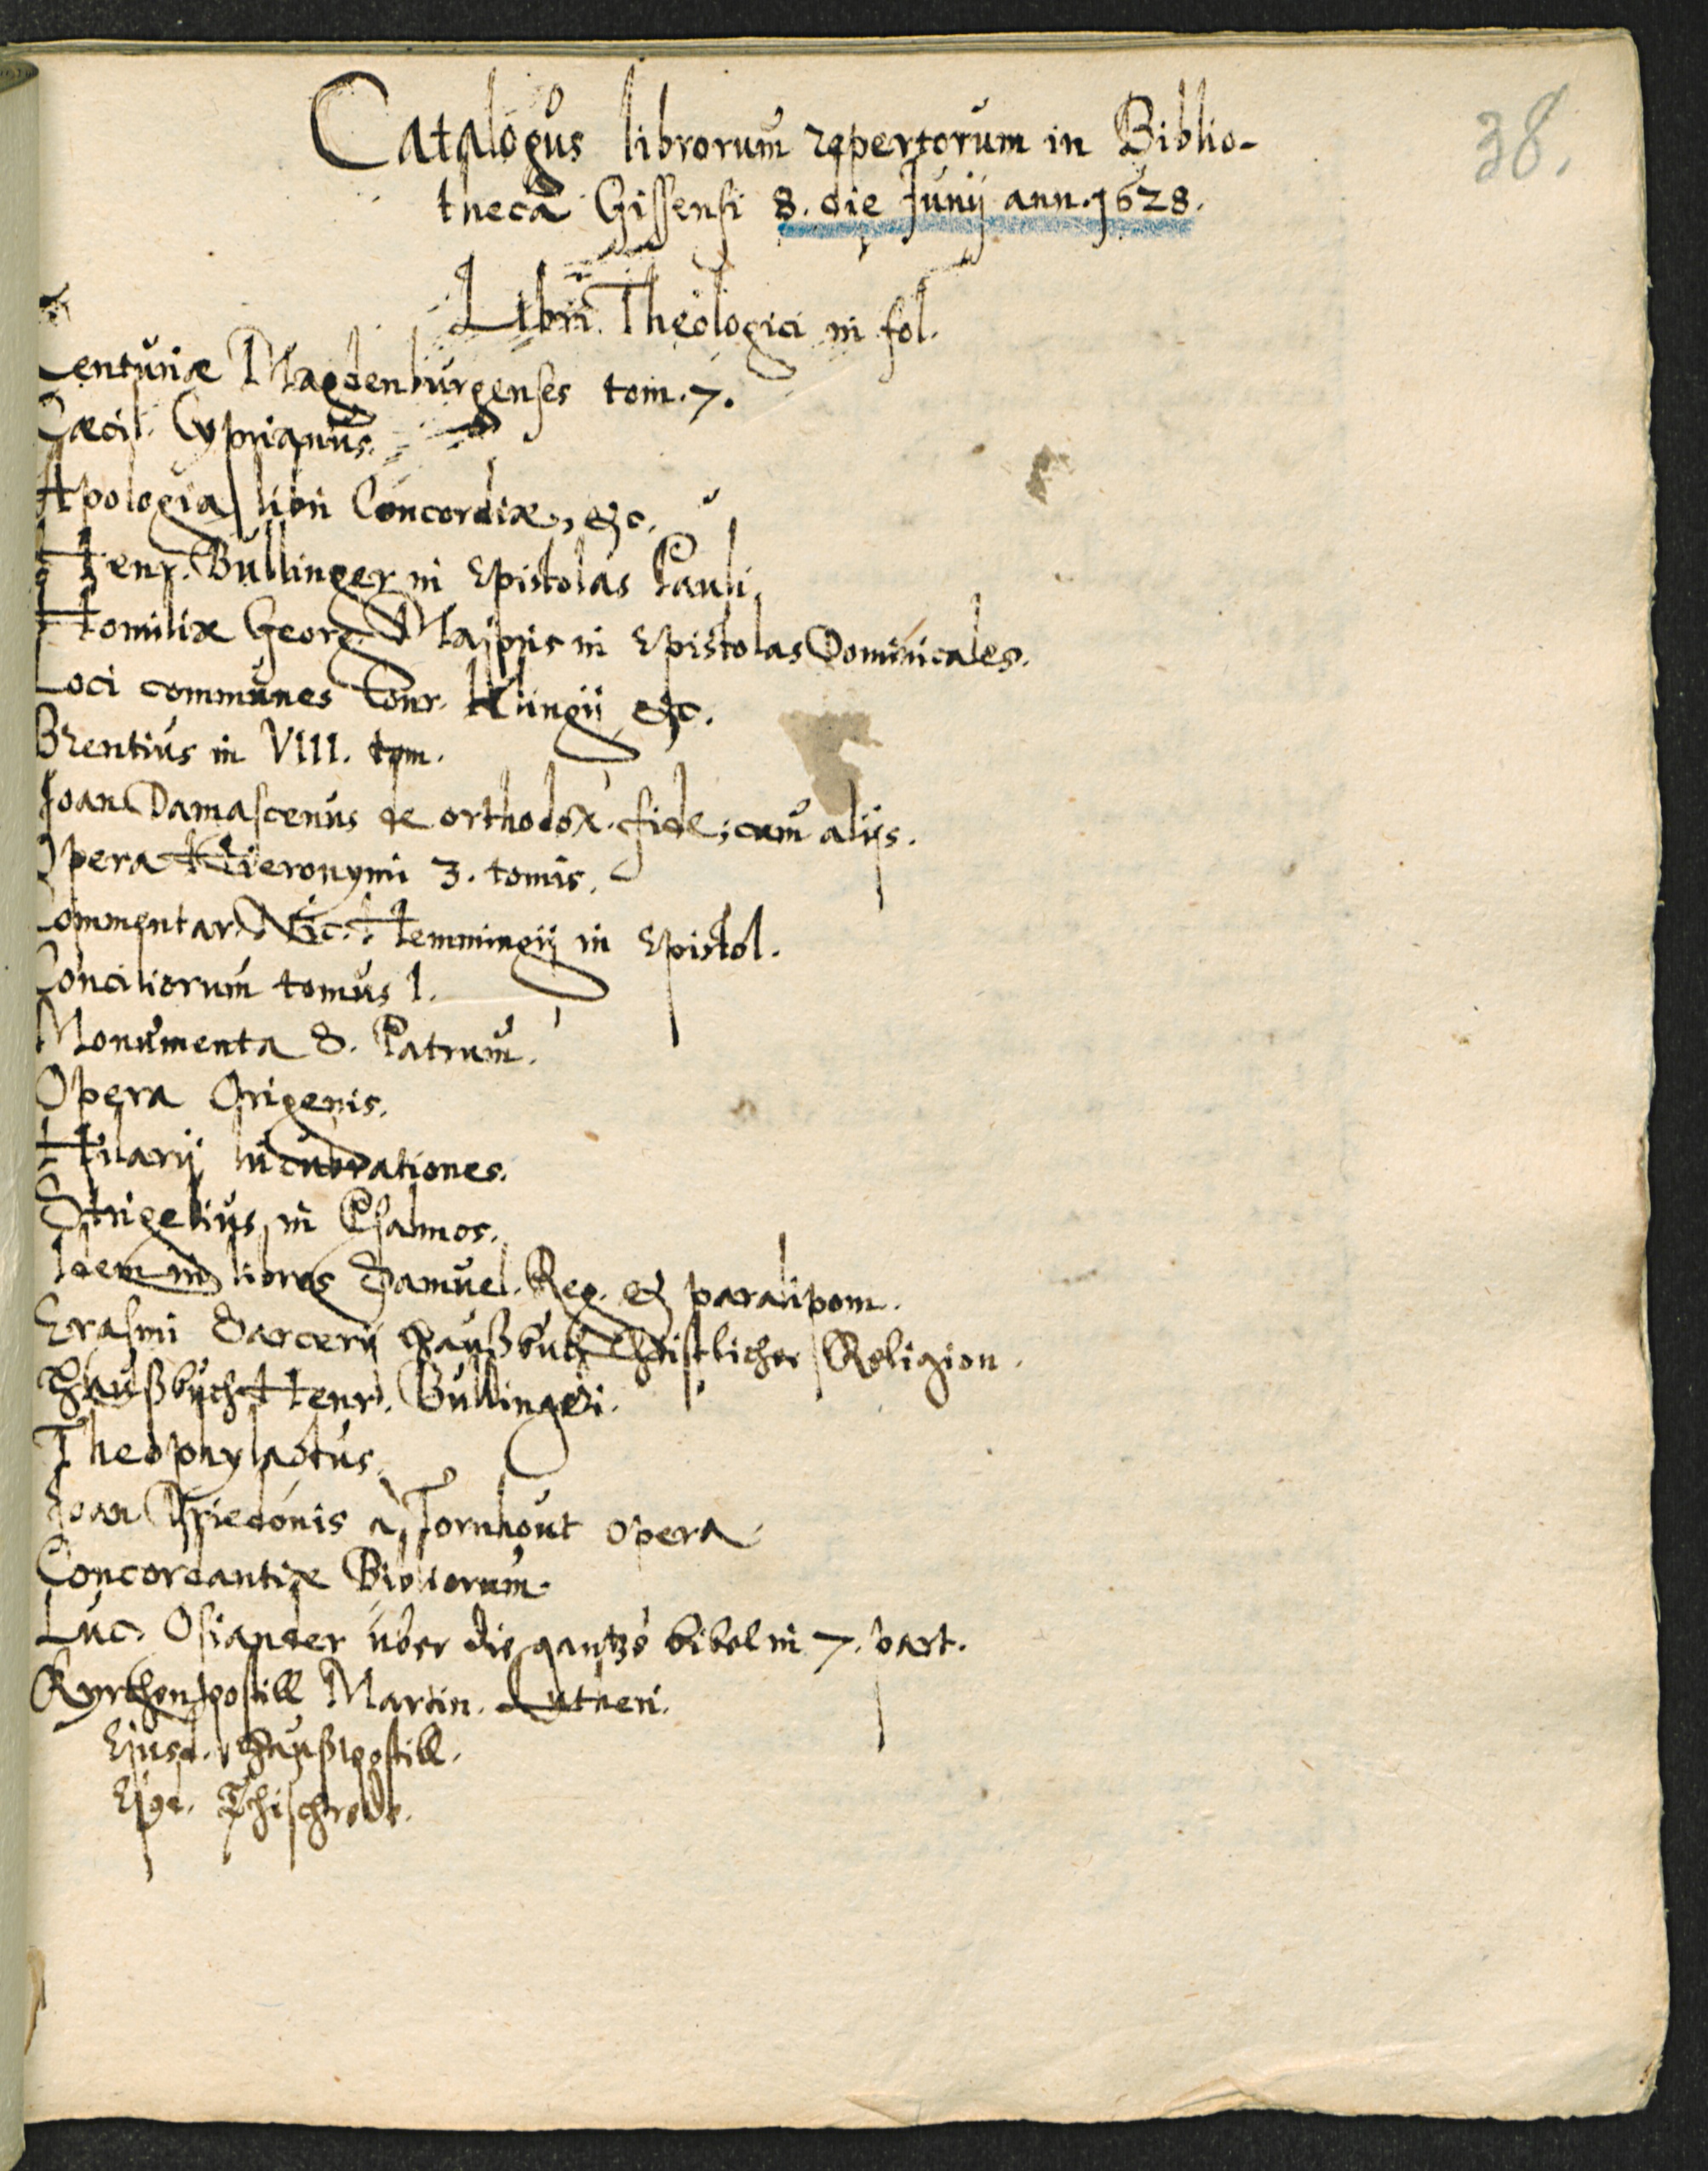 38.
Catalogus librorum repertorum in Biblio-
theca Gissensi 8. die Junij ann. 1628.
Libri Theologici in fol.
Centuriæ Magdenburgenses tom. 7.
Cæcil. Cyprianus.
Apologia libri Concordiæ, &c.
Henr. Bullinger in Epistolas Pauli.
Homiliæ Georg. Majoris in Epistolas Dominicales.
Loci communes Conr. Klingij &c.
Brentius in VIII. tom.
Joan Damascenus de orthodox. fide; cum alijs.
Opera Hieronymi 3. tomis.
Commentar. Nic. Hemmingij in Epistol.
Conciliorum tomus 1.
Monumenta S. Patrum.
Opera Origenis.
Hilarij lucubrationes.
Strigelius in Psalmos.
Idem in libros Samuel. Reg. & paralipom.
Erasmi Sarcerij Haußbuch Christlicher Religion.
Haußbuch Henr. Bullingeri.
Theophylactus.
Joan Driedonis à Tornhout opera
Concordantiæ Bibliorum.
Luc. Osiander über die gantze bibel in 7. part.
Kyrchenpostill Martin. Lutheri.
Ejusd. Haußpostill.
Ejsd. Thischrede.